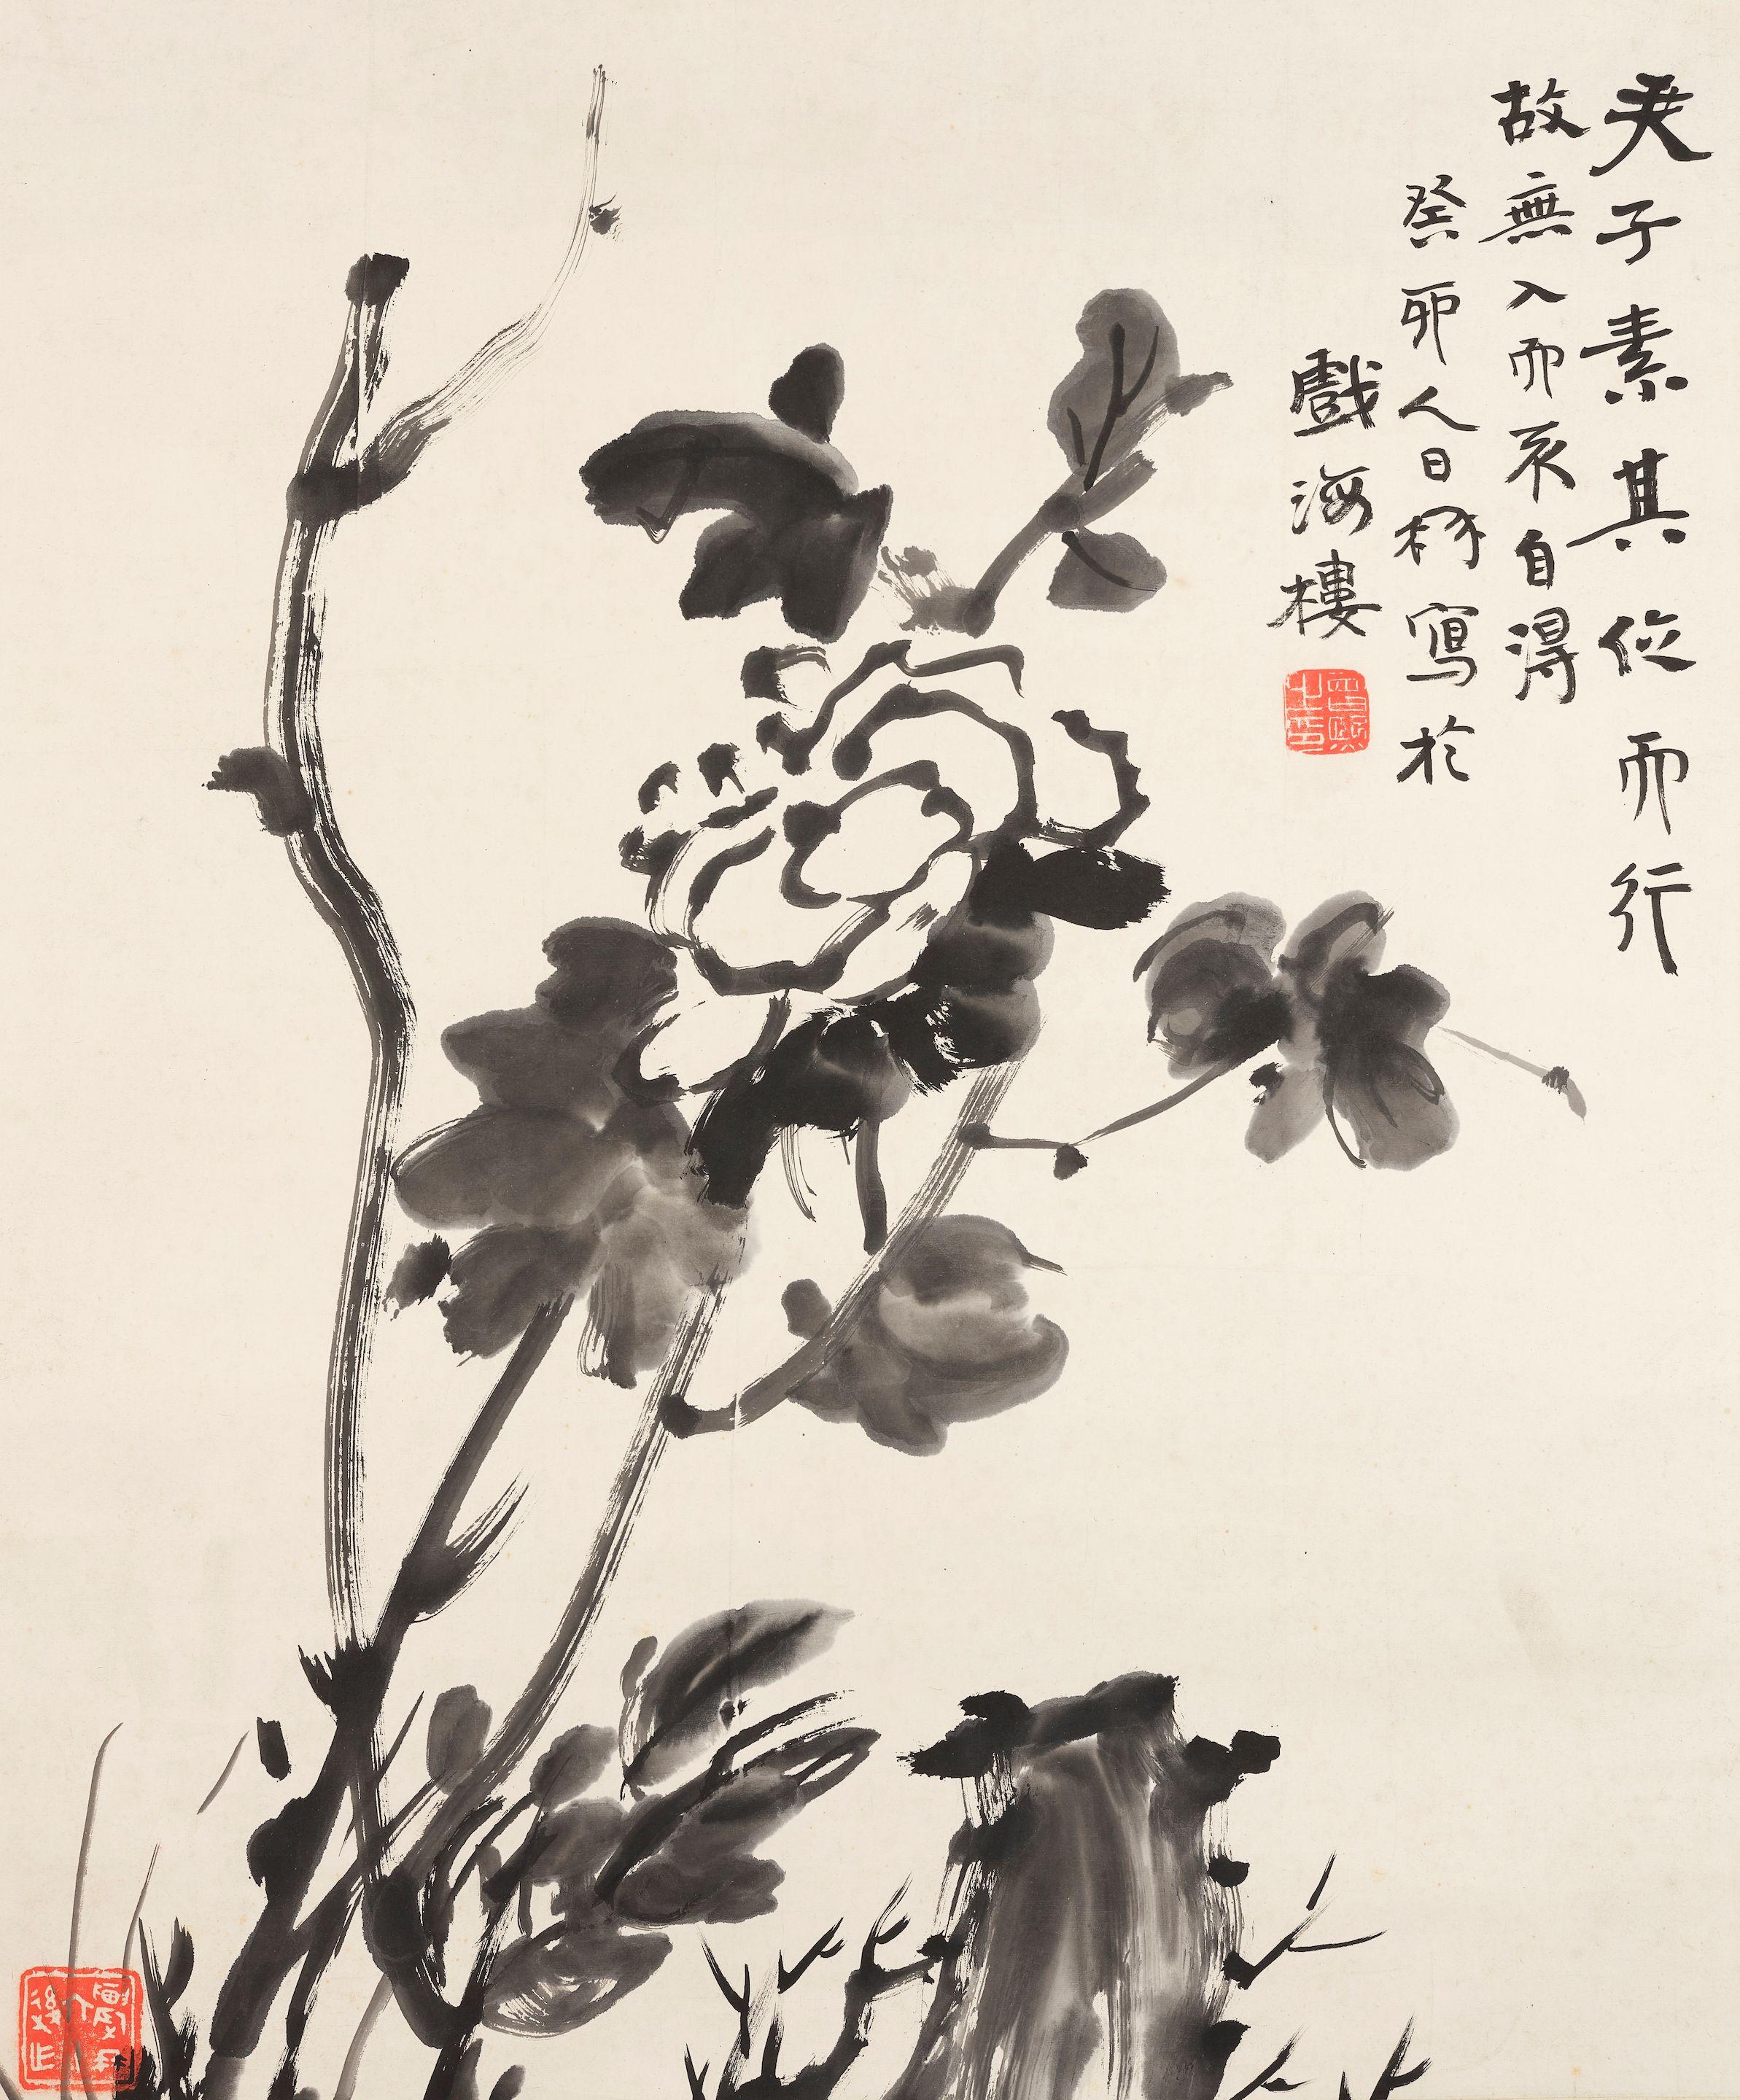 君子素其位而行
故無入而不自得
癸卯人日𣏌寫於
戲海樓